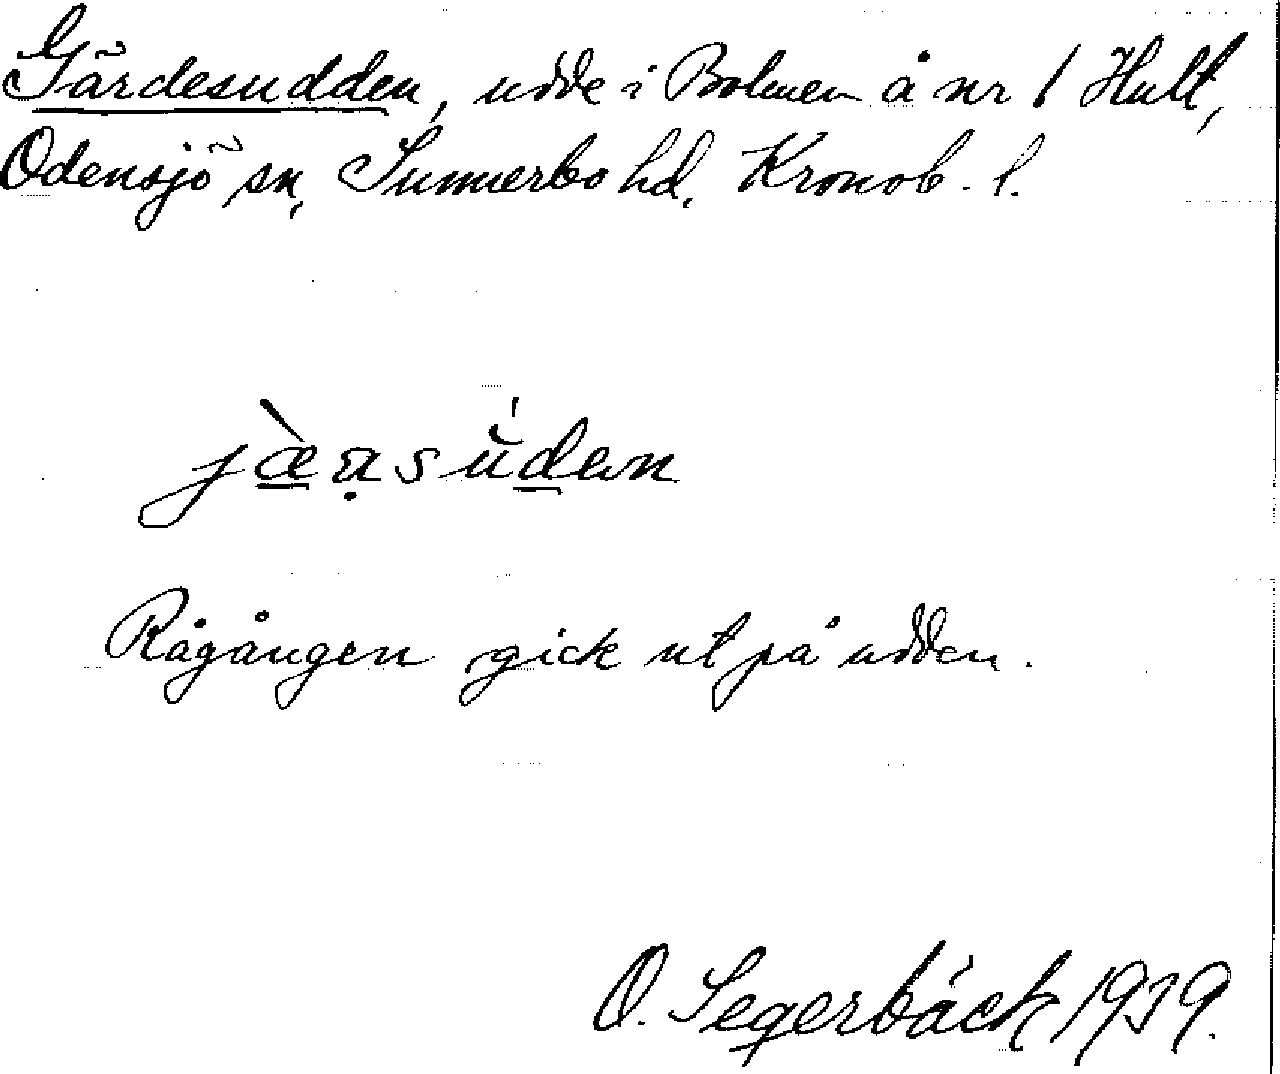 Gärdesudden, udde i Bolmen å nr 1 Hult,
Odensjö sn, Sunnerbo hd, Kronob. l.
Rågången gick ut på udden.
O. Segerbäck 1939.